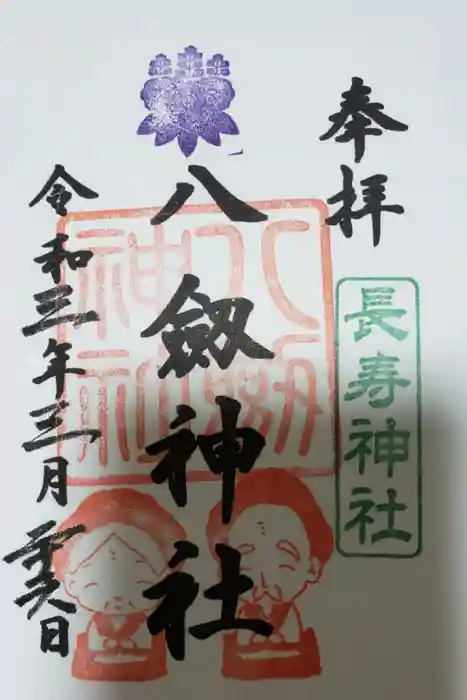 奉拝
長寿神社
八剱神社
八剱
神社
令和三年三月 日